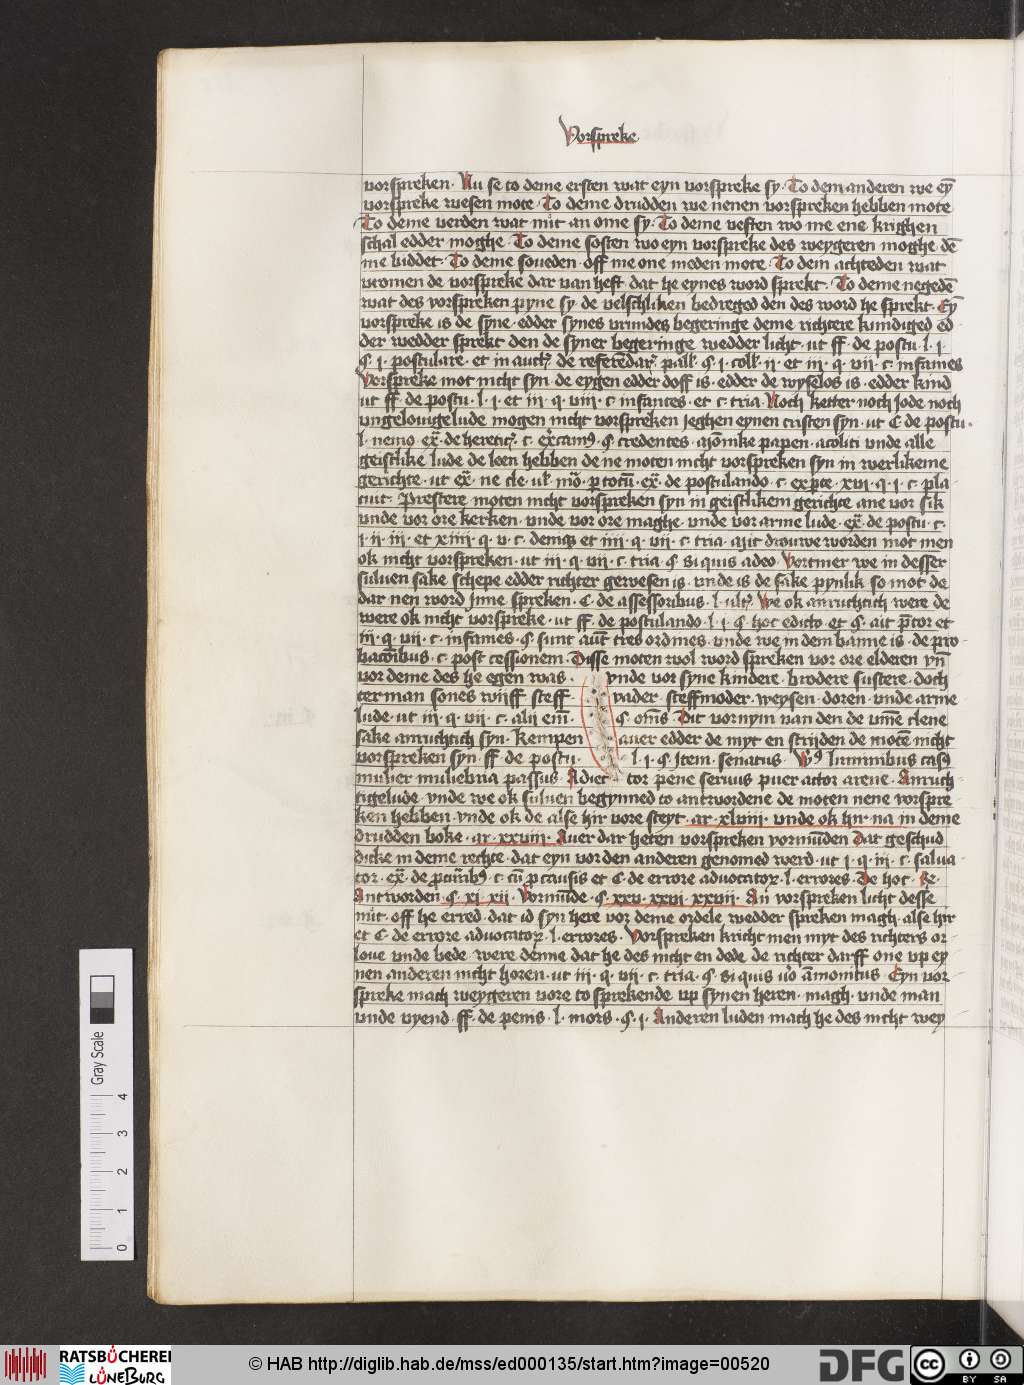 Vorspreke
vorspreken · Nu se to deme ersten wat eyn vorspreke sy · To dem anderen we ey̅
vorspreke wesen mote · To deme drudden we nenen vorspreken hebben mote
To deme verden wat nu̇t an ome sy · To deme veften wo me ene krighen
schal edder moghe · To deme sosten wo eyn vorspreke des weygeren moghe · de̅
me biddet · To deme soueden · off me one meden mote · To dem achteden wat
vromen de vorspreke dar van heft · dat he eynes word sprekt · To deme negede̅
wat des vorspreken pyne sy · de velschliken bedreged den des word he sprekt · Ey̅
vorspreke is de syne · edder synes vrundes begeringe deme richtere kundiged ed
der wedder sprekt den de syner begeringe wedder licht · ut ff · de postu · l · i ·
§ · i · postulare · et in de refere̅dar · pall · § · i · coll · ii · et iii · q · vii · c · infames
Vorspreke mot nicht syn · de eygen edder doff is · edder de wyselos is · edder kind
ut ff · de postu · l · i · et iii · q · viii · c · infantes · et c · tria · Noch ketter noch Jode noch
vngelouigelude mogen nicht vorspreken jeghen eynen cristen syn · ut C de postu ·
l · nemo ex̅ · de heretic · c · § · credentes · Mo̅nike papen · acoliti vnde alle
geistlike lude de leen hebben de ne moten nicht vorspreken syn in werlikeme
gerichte · ut ex̅ · ne cle · ul · mo̅ · p totu̅ · ex̅ · de postulando · c · ex p̱te · xvi · q · i · c · pla
cuit · Prestere moten nicht vorspreken syn in geistlikem gerichte ane vor sik
vnde vor ore kerken · vnde vor ore maghe · vnde vor arme lude · ex̅ · de postu · c ·
i · ii · iii · et xiiii · q · v · c · deniq et iii · q · vii · c · tria · Mit drouwe worden mot men
ok nicht vorspreken · ut iii · q · vii · c · tria · § · Si quis adeo · Vortmer we in desser
suluen sake schepe edder richter gewesen is · vnde is de sake pynlik so mot de
dar nen word jnne spreken · C · de assessoribus · l · ult · We ok anruchtich were de
were ok nicht vorspreke · ut ff · de postulando · l · i · § · hoc edicto · et § · ait p̅tor et
iii · q · vii · c · infames · § · sunt au̅t tres ordines · vnde we in dem banne is · de pro
bac̅o̅ibus · c · post cessionem · Disse moten wol word spreken vor ore elderen vn̅
vor deme des he egen was · vnde vor syne kindere · brodere sustere · doch
ter man sones wiff steff · vader · steffmoder · weysen · doren · vnde arme
lude · ut iii · q · vii · c · alii em̅ · § · om̅is · Dit vornym van den de vm̅e clene
sake anruchtich syn · Kempen auer edder de myt en strijden de mote̅ nicht
vorspreken syn · ff · de postu · l · i · § · Jtem · senatus · luminibus
mulier muliebria passus · Adiec tor pene servus puer actor arene · Anruch
tigelude · vnde we ok suluen begynned to antwordene de moten nene vorspre
ken hebben · vnde ok de alse hir vore steyt · ar · xlviii · vnde ok hir · na in deme
drudden boke · ar · xxviii · Auer dar heten vorspreken vormu̅den Dat geschud
dicke in deme rechte · dat eyn vor den anderen genomed werd · ut i · q · iii · c · salua
tor · ex̅ · de · c · cu̅ p̱ causis et C · de errore aduocator · l · errores · De hoc · Re ·
Antworden § · xi · xii · Vormu̅de · § · xxv · xxvi · xxvii · An vorspreken licht desse
nu̇t · off he erred · dat id syn here vor deme ordele wedder spreken magh · alse hir
et C · de errore aduocator · l · errores · Vorspreken kricht men myt des richters or
loue vnde bede · were de̅nne dat he des nicht en dede de richter darff one vp ey
nen anderen nicht horen · ut iii · q · vii · c · tria · § · Si quis a̅monitus · Eyn vor
spreke mach weygeren vore to sprekende vp synen heren · magh · vnde man
vnde vyend · ff · de penis · l · mors · § · i · Anderen luden mach he des nicht wey
Gray Scale
0 1 2 3 4
RATSBÜCHEREI LÜNEBURG
© HAB http://diglib.hab.de/mss/ed000135/start.htm?image=00520
DFG
cc BY SA